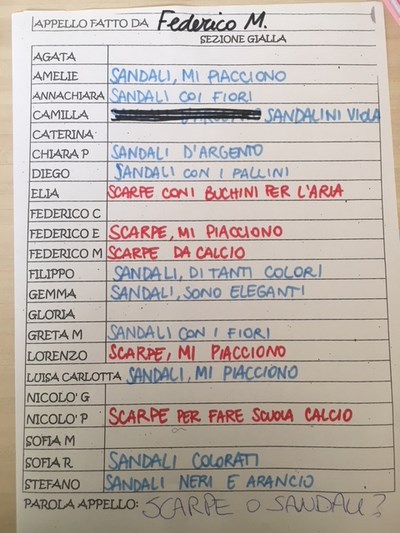 APPELLO FATTO DA Federico M.
SEZIONE GIALLA
AGATA
AMELIE SANDALI, MI PIACCIONO
ANNACHIARA SANDALI COI FIORI
CAMILLA SANDALINI VIOLA
CATERINA
CHIARA P SANDALI D'ARGENTO
DIEGO SANDALI CON I PALLINI
ELIA SCARPE CONI BUCHINI PER L'ARIA
FEDERICO C
FEDERICO E SCARPE, MI PIACCIONO
FEDERICO M SCARPE DA CALCIO
FILIPPO SANDALI, DI TANTI COLORI
GEMMA SANDALI, SONO ELEGANTI
GLORIA
GRETA M SANDALI CON I FIORI
LORENZO SCARPE, MI PIACCIONO
LUISA CARLOTTA SANDALI, MI PIACCIONO
NICOLO' G
NICOLO' P SCARPE PER FARE SCUOLA CALCIO
SOFIA M
SOFIA R SANDALI COLORATI
STEFANO SANDALI NERI E ARANCIO
PAROLA APPELLO: SCARPE O SANDALI?